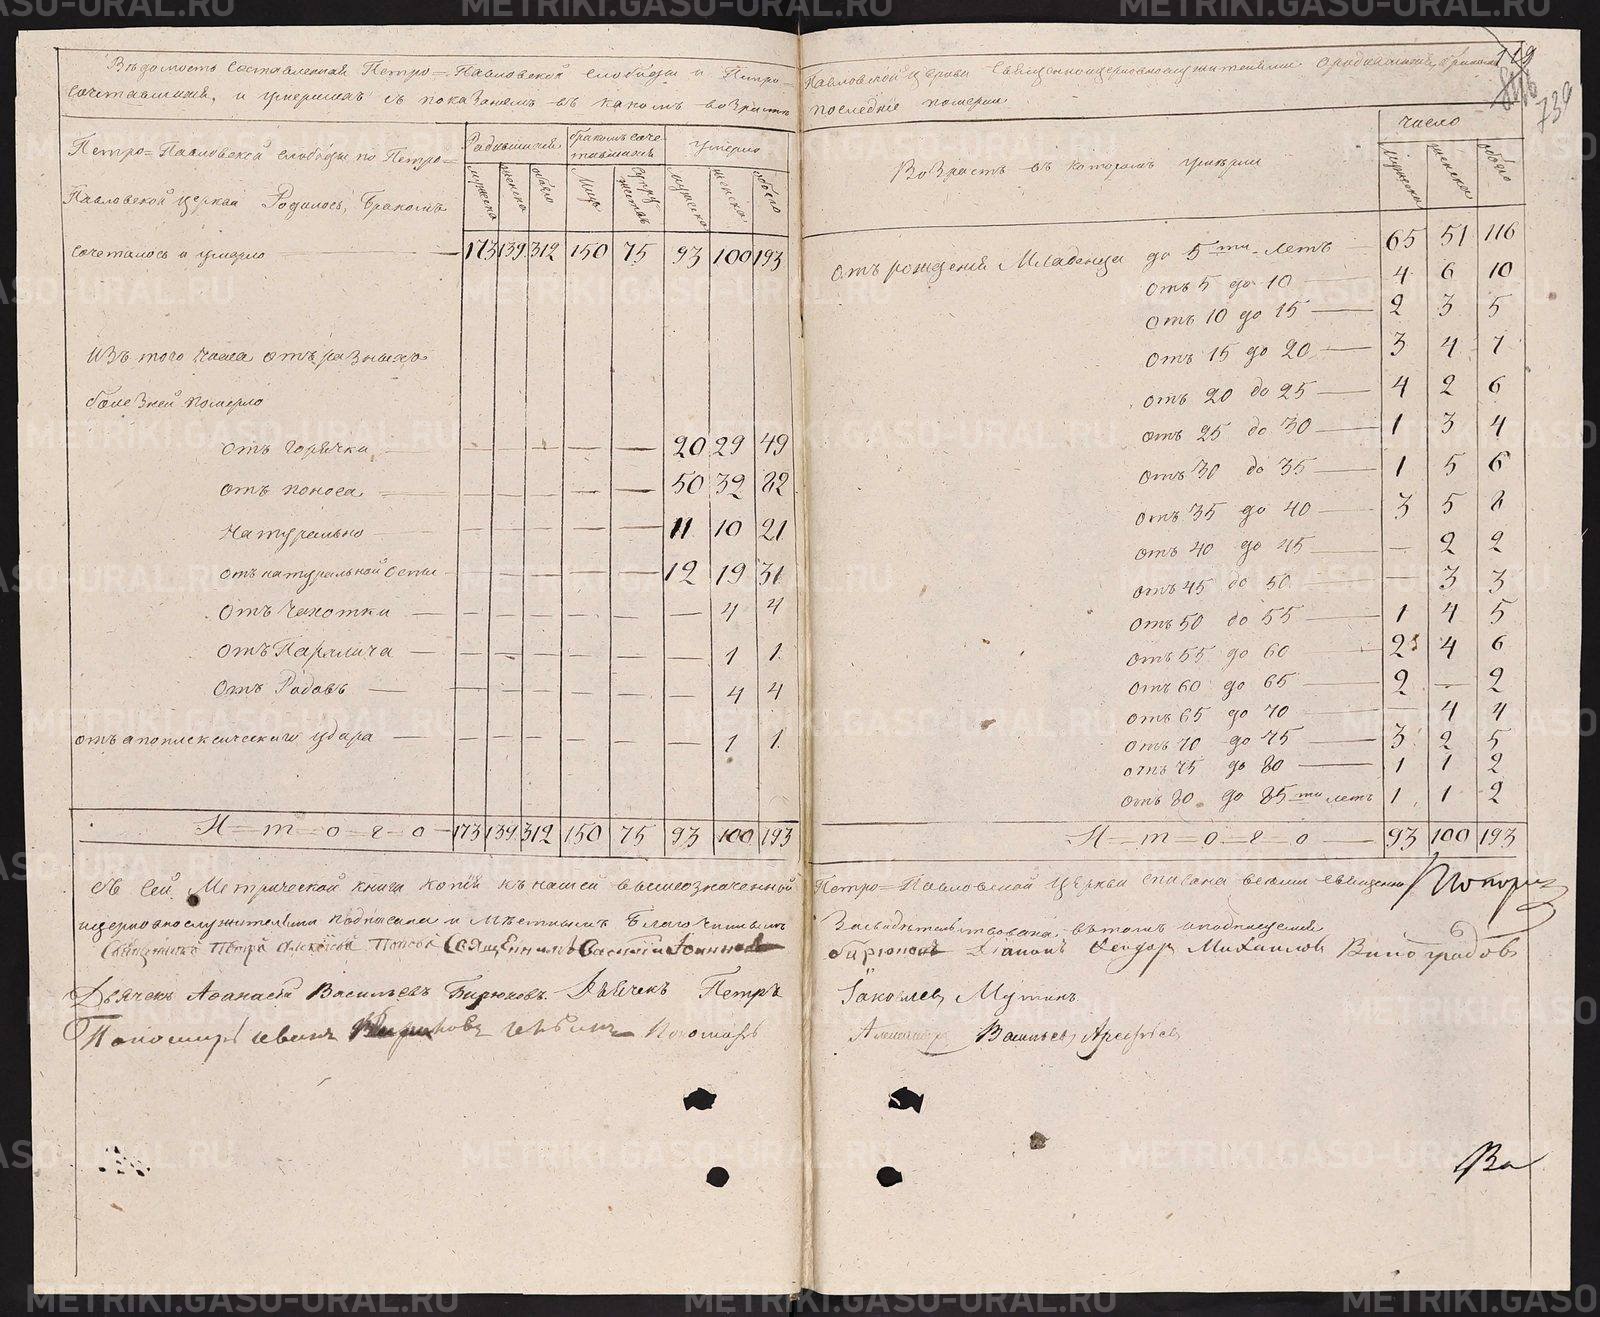 Вѣдомость составленная Петро=Павловской слободы и Петро=Павловской церкви священноцерковнослужителями о родившихся, бракомъ
сочетавшихся, и умершихъ съ показанiемъ въ какомъ возрастѣ последнiе померли
119
739
Петро=Павловской слободы по Петро=
Павловской церкви Родилось, бракомъ
сочеталось и умерло 173 139 312 150 75 93 100 193
Родившихся
бракомъ соче-
тавшихся
умерло
мужеска
женска
обоего
лицъ
супру
жествъ
мужеска
женска
обоего
Изъ того числа отъ разныхъ
болезней померло
отъ горячки — — — — — 20 29 49
отъ поноса — — — — — 50 32 82
натурально — — — — — 11 10 21
отъ натуральной оспы — — — — — 12 19 31
отъ чахотки — — — — — — 4 4
отъ Паралича — — — — — — 1 1
отъ Родовъ — — — — — — 4 4
отъ апоплексическаго удара — — — — — — 1 1
И—т—о—г—о 173 139 312 150 75 93 100 193
Возрастъ въ которомъ умерли
число
мужеска
женска
обоего
отъ рожденiя Младенца до 5ти летъ 65 51 116
отъ 5 до 10 4 6 10
отъ 10 до 15 2 3 5
отъ 15 до 20 3 4 7
отъ 20 до 25 4 2 6
отъ 25 до 30 1 3 4
отъ 30 до 35 1 5 6
отъ 35 до 40 3 5 8
отъ 40 до 45 — 2 2
отъ 45 до 50 — 3 3
отъ 50 до 55 1 4 5
отъ 55 до 60 2 4 6
отъ 60 до 65 2 — 2
отъ 65 до 70 — 4 4
отъ 70 до 75 3 2 5
отъ 75 до 80 1 1 2
отъ 80 до 85ти летъ 1 1 2
И—т—о—г—о 93 100 193
Съ сей Метрической книги копiя къ нашей вышеозначенной Петро=Павловской церкви списана всеми священно
церковнослужителями подписана и местнымъ благочиннымъ
Священникъ Петръ Алексѣевъ Поповъ Священникъ Василiй Iоанновъ Бирюковъ Дiаконъ Ѳеодоръ Михаиловъ Виноградовъ
Дьячекъ Аѳанасiй Васильевъ Бирюковъ. Дьячекъ Петръ Iаковлевъ Мутинъ
Пономарь Иванъ Пономарь Александръ Васильевъ Арефьевъ
METRIKI.GASO-URAL.RU